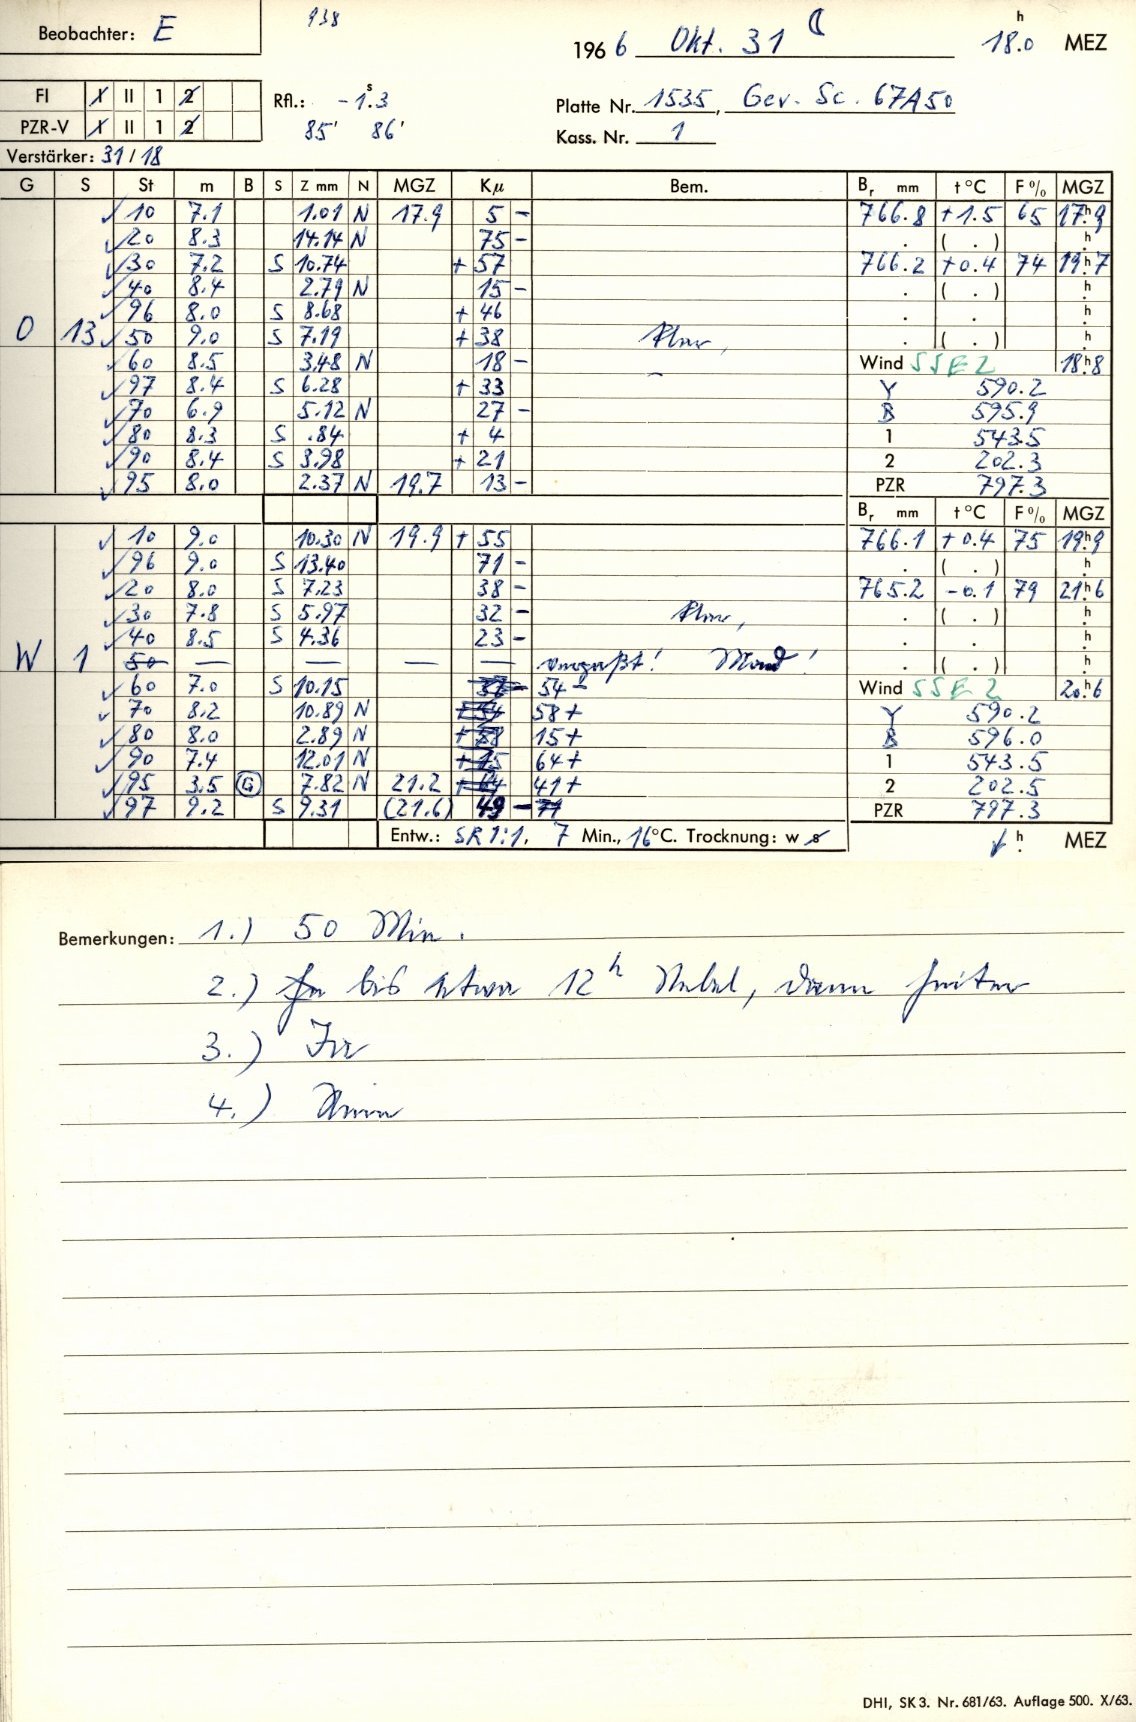 938
Beobachter: E
1966 Okt. 31 ☾ 18.0 h MEZ
FI I II 1 2
Rfl.: -1.3 s
Platte Nr. 1535, Gev. Sc. 67A50
PZR-V I II 1 2
85' 86'
Kass. Nr. 1
Verstärker: 31/18
G S St m B S Z mm N MGZ Kμ Bem. Br mm t °C F % MGZ
✓ 10 7.1 1.01 N 17.9 5 - 766.8 +1.5 65 17.h9
✓ 20 8.3 14.14 N 75 - . ( . ) h
✓ 30 7.2 S 10.74 + 57 766.2 +0.4 74 19.h7
✓ 40 8.4 2.79 N 15 - . ( . ) h
✓ 96 8.0 S 8.68 + 46 . . h
O 13 ✓ 50 9.0 S 7.19 + 38 Klar, . ( . ) h
✓ 60 8.5 3.48 N 18 - Wind SSE 2 18.h8
✓ 97 8.4 S 6.28 + 33 Y 590.2
✓ 70 6.9 5.12 N 27 - B 595.9
✓ 80 8.3 S .84 + 4 1 543.5
✓ 90 8.4 S 3.98 + 21 2 202.3
✓ 95 8.0 2.37 N 19.7 13 - PZR 797.3
Br mm t °C F % MGZ
✓ 10 9.0 10.30 N 19.9 + 55 766.1 +0.4 75 19.h9
✓ 96 9.0 S 13.40 71 - . ( . ) h
✓ 20 8.0 S 7.23 38 - 765.2 -0.1 79 21.h6
✓ 30 7.8 S 5.97 32 - Klar, . ( . ) h
✓ 40 8.5 S 4.36 23 - . . h
W 1 50 — — — — verpaßt! Mond! . ( . ) h
✓ 60 7.0 S 10.15 37 - 54 - Wind SSE 2 20.h6
✓ 70 8.2 10.89 N +54 58 + Y 590.2
✓ 80 8.0 2.89 N +58 15 + B 596.0
✓ 90 7.4 12.01 N +15 64 + 1 543.5
✓ 95 3.5 G 7.82 N 21.2 +64 41 + 2 202.5
✓ 97 9.2 S 9.31 (21.6) 49 - 71 PZR 797.3
Entw.: SR 1:1. 7 Min., 16 °C. Trocknung: w s
h MEZ
Bemerkungen: 1.) 50 Min.
2.) bis etwa 12h Nebel, dann heiter
3.) Irr
4.)
DHI, SK 3. Nr. 681/63. Auflage 500. X/63.